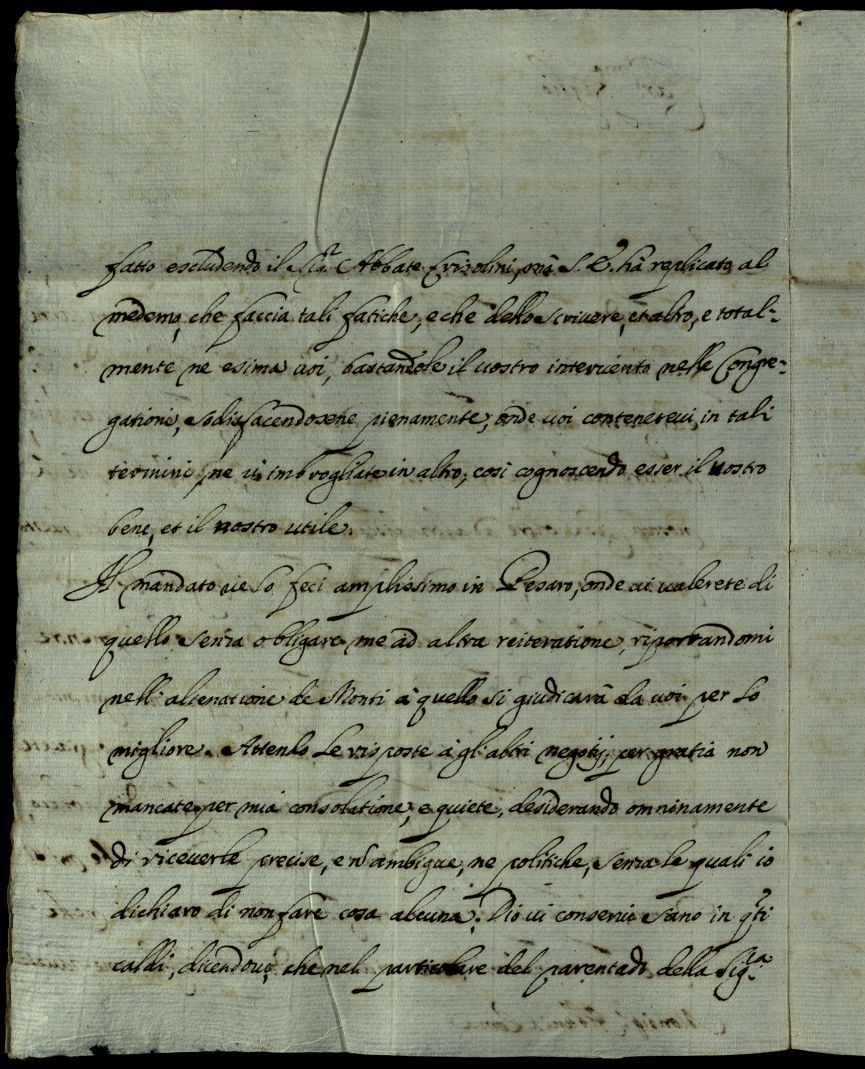 fatto escludendo il Sig.r Abbate Crisolini, mà S. E. hà replicato al
medemo, che faccia tali fatiche, e che dello scrivere, et altro, e total=
mente ne esima voi, bastandole il vostro intervento nelle Congre=
gationi, sodisfacendosene pienamente; onde voi contenetevi in tali
termini, ne v'imbrogliate in altro, così cognoscendo esser il vostro
bene, et il vostro utile.
Il mandato ve lo feci amplissimo in Pesaro, onde vi valerete di
quello senza obligare me ad altra reiteratione, riportandomi
nell'alienatione de Monti à quello si giudicarà da voi per lo
migliore. Attendo le risposte à gl'altri negotij, per gratia non
mancate per mia consolatione, e quiete, desiderando omninamente
di riceverle precise, e nõ ambigue, ne politiche, senza le quali io
dichiaro di non fare cosa alcuna. Dio vi conservi sano in q.ti
caldi, dicendovi, che nel particolare del parentado della Sig.ra